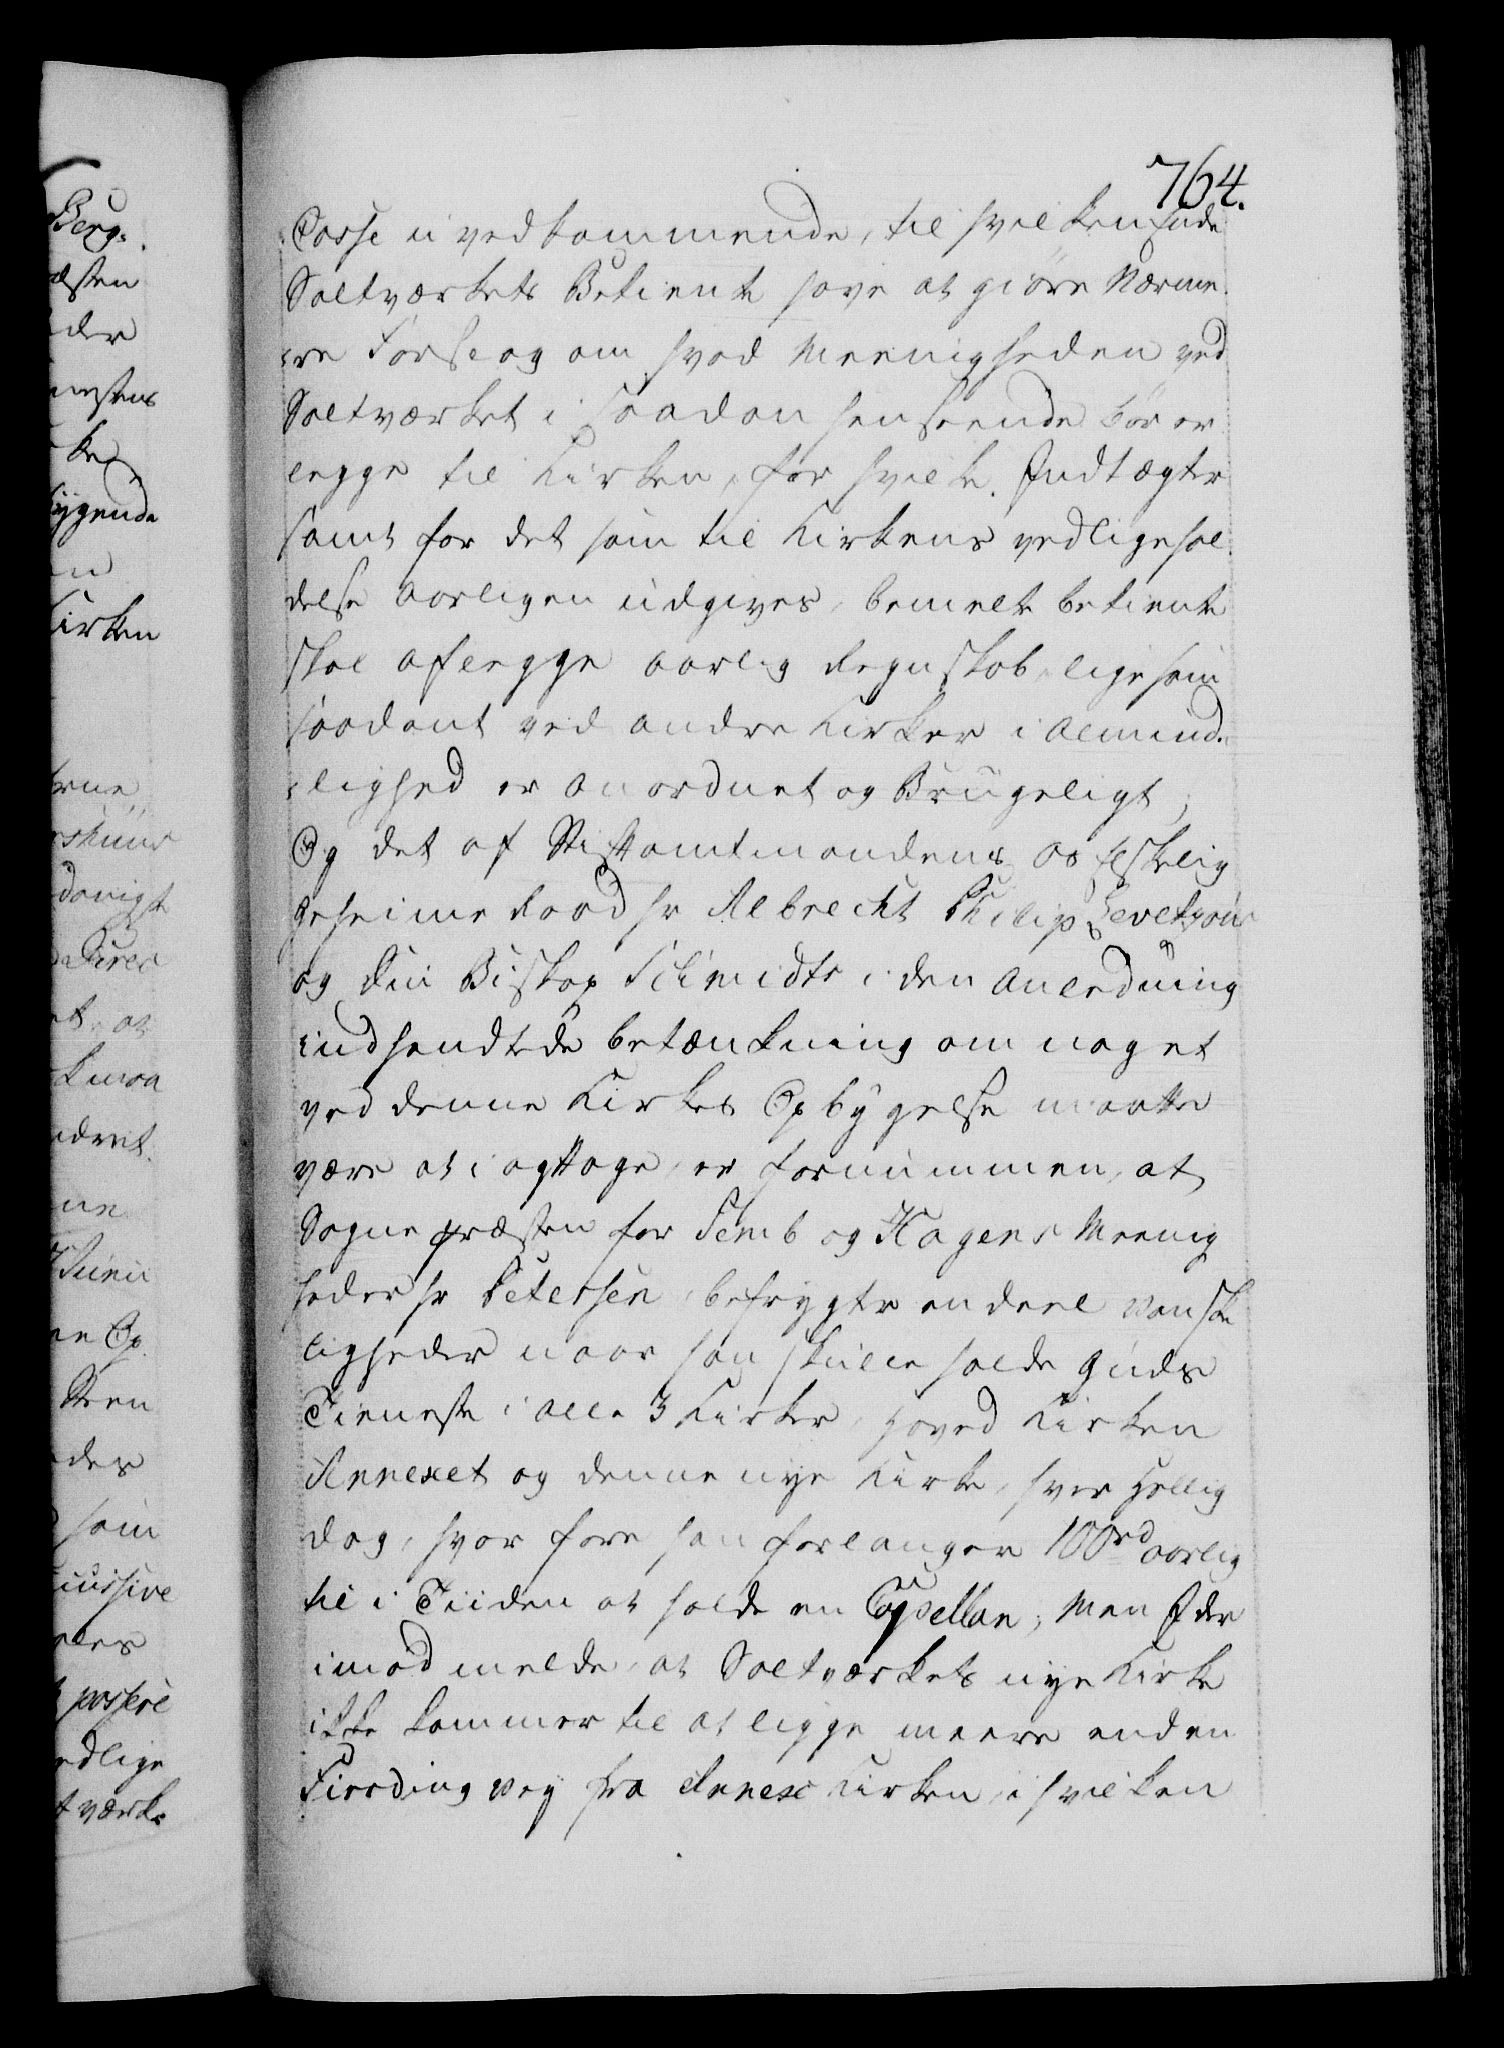 764.
Casse u vedkommende, til hvilken Ende
Saltværkets Betiente have at giøre Nærme-
-re Forslag om hvad Meenigheden ved
Saltværket i saadan henseende bør er
legge til Kirken, for hvilke Indtægter
samt for det som til Kirkens vedligehol
delse aarligen udgives, bemelte betiente
skal aflegge aarlig Regnskab, ligesom
saadant ved andre Kirker i Almind-
-lighed er anordnet og Brugeligt;
Og det af Stiftamtmandens os Elskelig
geheime Raad hr Albrecht Philip Levetzous
og Din Biskop Schmidts i den Anledning
indsendtede betænkning om noget
ved denne Kirkes Opbygelse maatte
være at i agttage, er fornummen, at
Sogne præsten for Semb og Slagens Meenig
heder hr Petersen, befrygter en deel vanske
ligheder naar han skulle holde Guds
Tieneste i alle 3 Kirker, Hoved Kirken
Annexet og denne nye Kirke, hver Hellig
dag, hvor fore han forlanger 100 rd aarlig
til i Tiiden at holde en Capellan; Men I der
imod melde, at Saltværkets nye Kirke
ikke kommer til at ligge meere end en
Fierding vey fra Annex Kirken, i hvilken
Berg-
ke
Kirken
at
som
passere